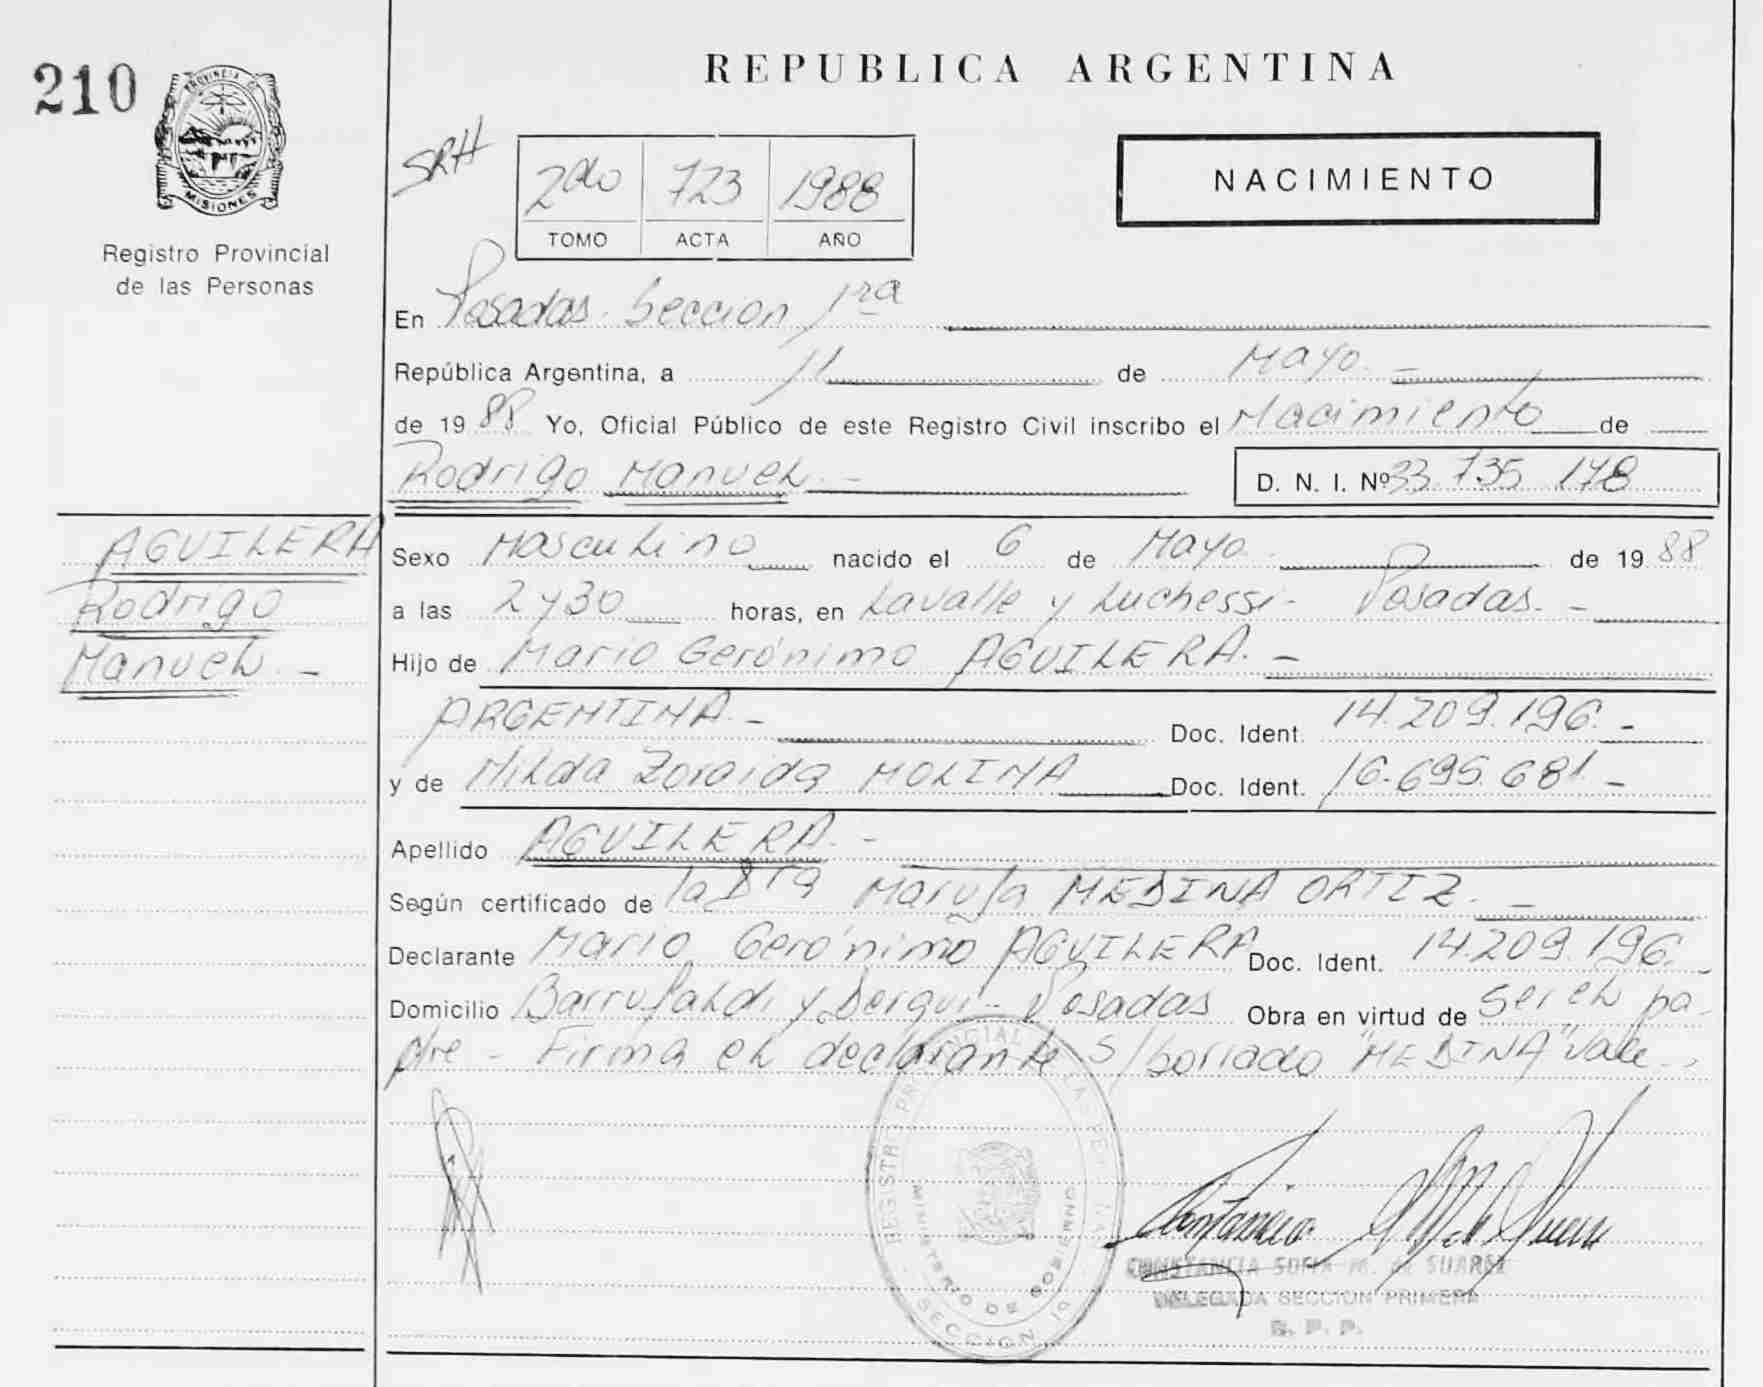 210
PROVINCIA DE
MISIONES
Registro Provincial
de las Personas
REPUBLICA ARGENTINA
SRH
2do 723 1988
TOMO ACTA AÑO
NACIMIENTO
En Posadas. Seccion 1ra
República Argentina, a 11 de Mayo.
de 1988 Yo, Oficial Público de este Registro Civil inscribo el Nacimiento de
Rodrigo Manuel. -
D. N. I. Nº 33 735 178
AGUILERA
Rodrigo
Manuel. -
Sexo Masculino nacido el 6 de Mayo de 1988
a las 2 y 30 horas, en Lavalle y Luchessi - Posadas. -
Hijo de Mario Gerónimo AGUILERA. -
ARGENTINA. - Doc. Ident. 14.209.196. -
y de Hilda Zoraida MOLINA Doc. Ident. 16.695.681. -
Apellido AGUILERA. -
Según certificado de la Dra Maruja MEDINA ORTIZ. -
Declarante Mario Gerónimo AGUILERA Doc. Ident. 14.209.196. -
Domicilio Barrufaldi y Derqui - Posadas Obra en virtud de ser el pa-
dre - Firma el declarante S/borrado "MEDINA" Vale. -
REGISTRO PROVINCIAL DE LAS PERSONAS
MINISTERIO DE GOBIERNO
SECCION 1a
CONSTANCIA SOFIA M. de SUAREZ
DELEGADA SECCION PRIMERA
R. P. P.